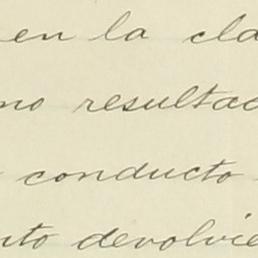 en la cla
no resultad
conducto
nto devolvie